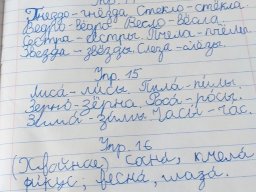 Гнездо-гнёзда. Стекло-стёкла.
Ведро-вёдра. Весло-вёсла.
Сестра-сёстры. Пчела-пчёлы.
Звезда-звёзды. Слеза-слёзы.
Упр. 15
Лиса́-ли́сы. Пила́-пи́лы.
Зерно́-зёрна. Роса́-ро́сы.
Зима́-зи́мы. Часы́-час.
Упр. 16
(Хвойная) сана, пчела
фикус, весна, глаза.